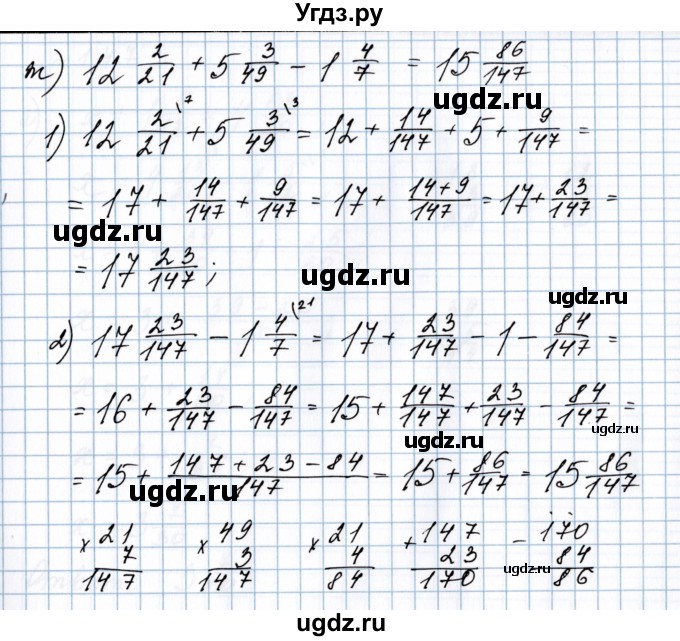 Угдз.ру
ж) 12 2/21 + 5 3/49 - 1 4/7 = 15 86/147
ugdz.ru
1) 12 2/21 \7 + 5 3/49 \3 = 12 + 14/147 + 5 + 9/147 =
ugdz.ru
= 17 + 14/147 + 9/147 = 17 + (14+9)/147 = 17 + 23/147 =
ugdz.ru
= 17 23/147 ;
ugdz.ru
2) 17 23/147 - 1 4/7 \21 = 17 + 23/147 - 1 - 84/147 =
= 16 + 23/147 - 84/147 = 15 + 147/147 + 23/147 - 84/147 =
ugdz.ru
ugdz.ru
= 15 + (147 + 23 - 84)/147 = 15 + 86/147 = 15 86/147
ugdz.ru
× 21 × 49 × 21 + 147 - 170
7 3 4 23 84
147 147 84 170 86
ugdz.ru
ugdz.ru
Угдз.ру